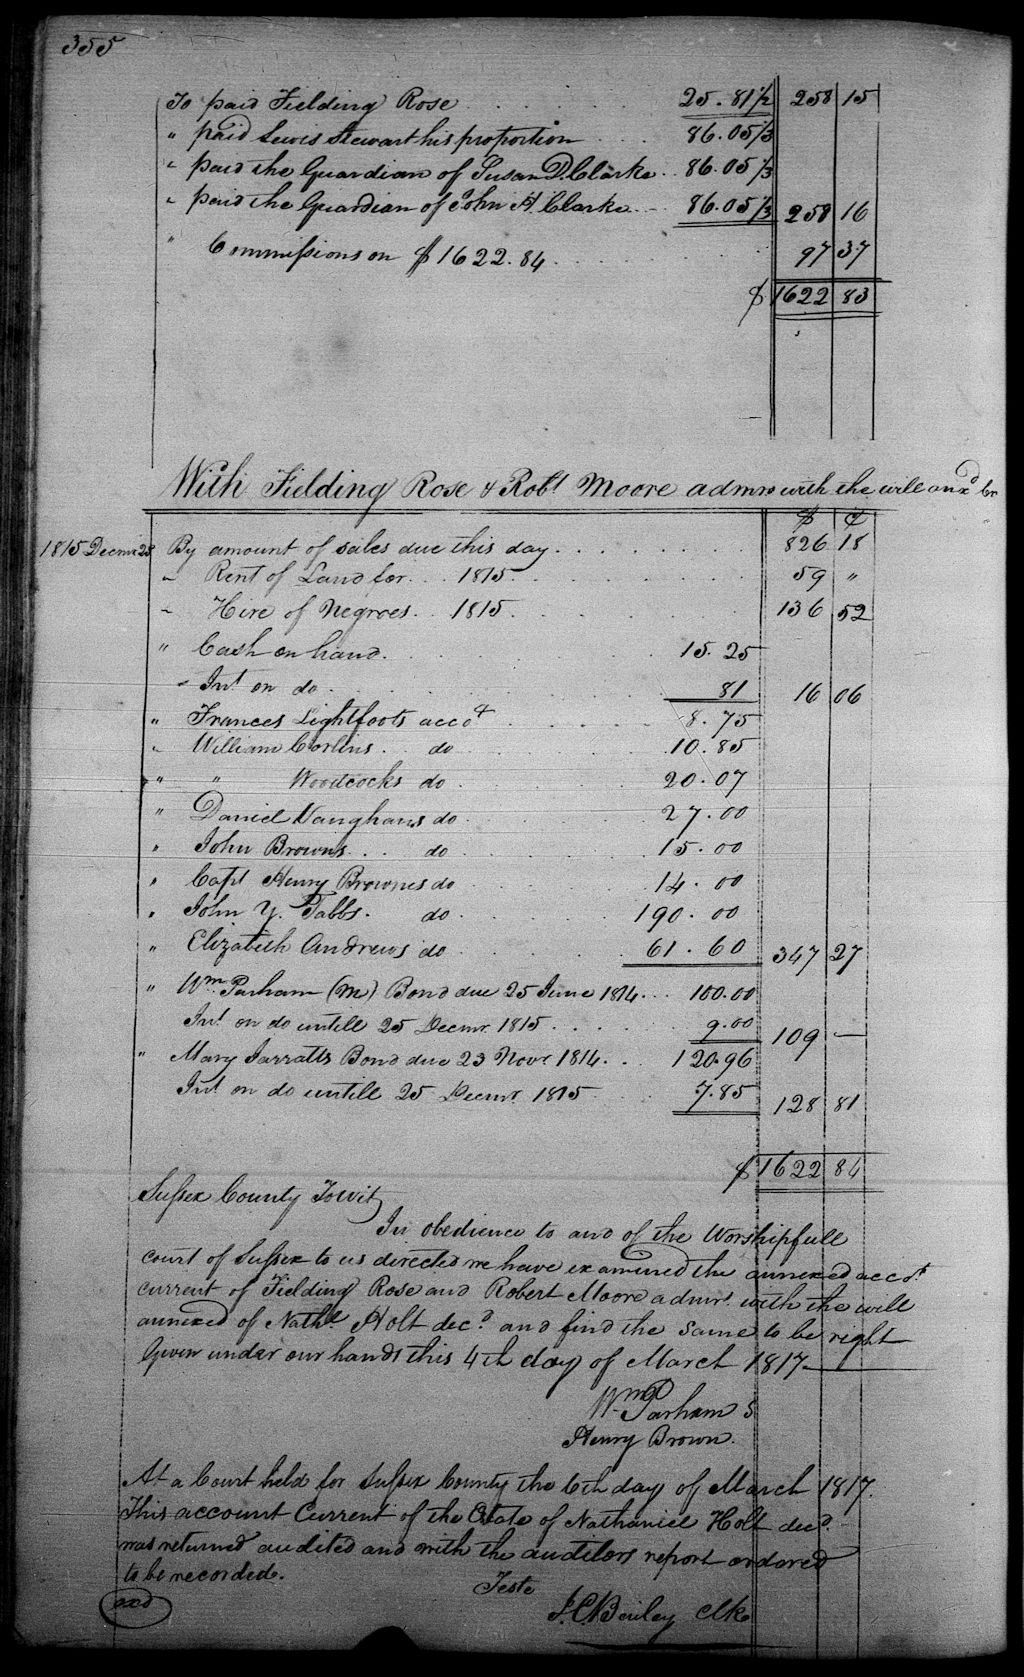 355
To paid Fielding Rose 25.81½ 258 15
" paid Lewis Stewart his proportion 86.05⅓
" paid the Guardian of Susan D. Clarke 86.05⅓
" paid the Guardian of John H Clarke 86.05⅓ 258 16
" Commissions on $1622.84 97 37
$ 1622 83
With Fielding Rose & Robt Moore admrs with the will anxd Cr
$ ¢
1815 Decmr 25 By amount of sales due this day 826 18
" Rent of Land for 1815 59 "
" Hire of Negroes 1815 136 52
" Cash on hand 15.25
" Int on do 81 16 06
" Frances Lightfoots acct 8.75
" William do 10.85
" " Woodcocks do 20.07
" Daniel Vaughans do 27.00
" John Browns do 15.00
" Capt Henry Brownes do 14.00
" John Y. Tabbs do 190.00
" Elizabeth Andrews do 61.60 347 27
" Wm Parham (M) Bond due 25 June 1814 100.00
Int on do untill 25 Decmr 1815 9.00 109 —
" Mary Jarratts Bond due 23 Novr 1814 120.96
Int on do untill 25 Decmr 1815 7.85 128 81
$ 1622 84
Sussex County Towit
In obedience to and of the Worshipfull
court of Sussex to us directed we have examined the annexed acct
current of Fielding Rose and Robert Moore admrs with the will
annexed of Nathl Holt decd and find the same to be right
Given under our hands this 4th day of March 1817
Wm Parham S
Henry Brown
At a Court held for Sussex County the 6th day of March 1817.
This account Current of the Estate of Nathaniel Holt decd
was returned audited and with the auditors report ordered
to be recorded.
Teste
exd
J.C. Bailey Clk